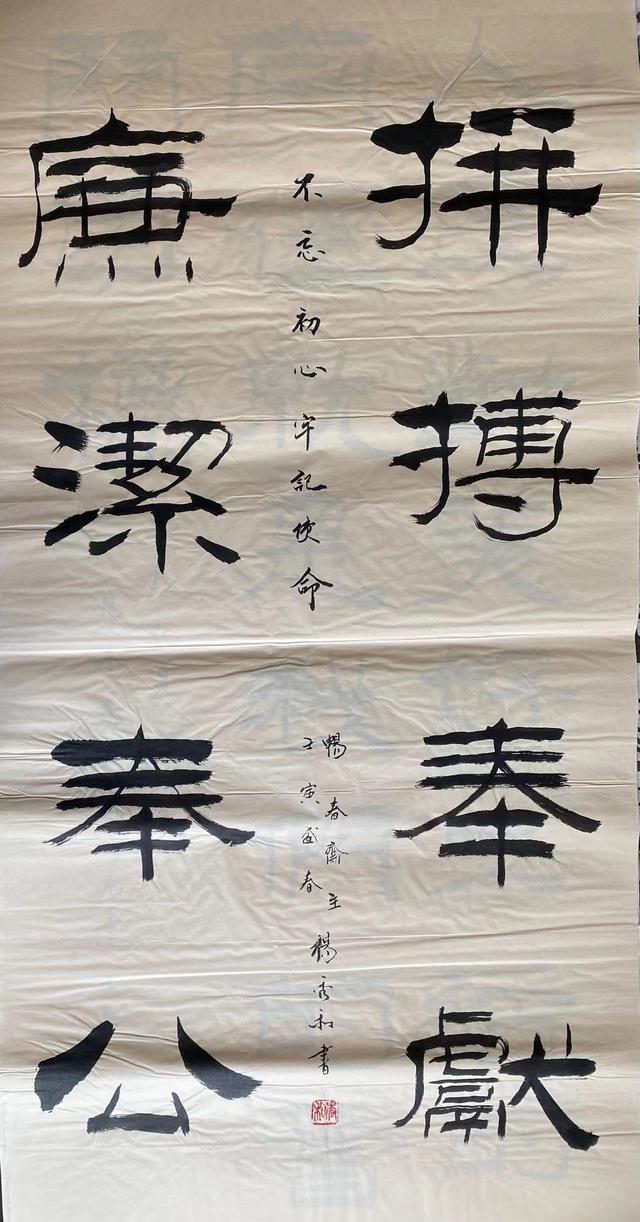 拼搏奉獻
不忘初心牢記使命
廉潔奉公
暢春齋主楊秀和書
壬寅盛春